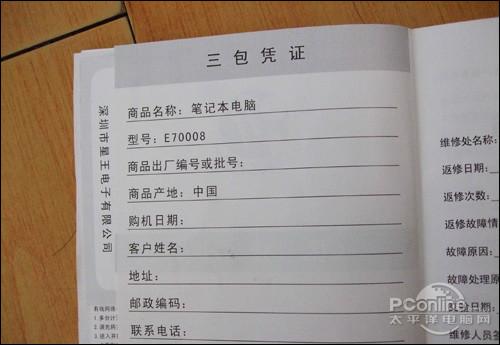 三包凭证
商品名称：笔记本电脑
型号：E70008
商品出厂编号或批号：
商品产地：中国
购机日期：
客户姓名：
地址：
邮政编码：
联系电话：
深圳市星王电子有限公司
维修处名称：
返修日期：
返修次数：
返修故障情
故障原因：
故障处理
交验日期：
维修人员
PConline
太平洋电脑网